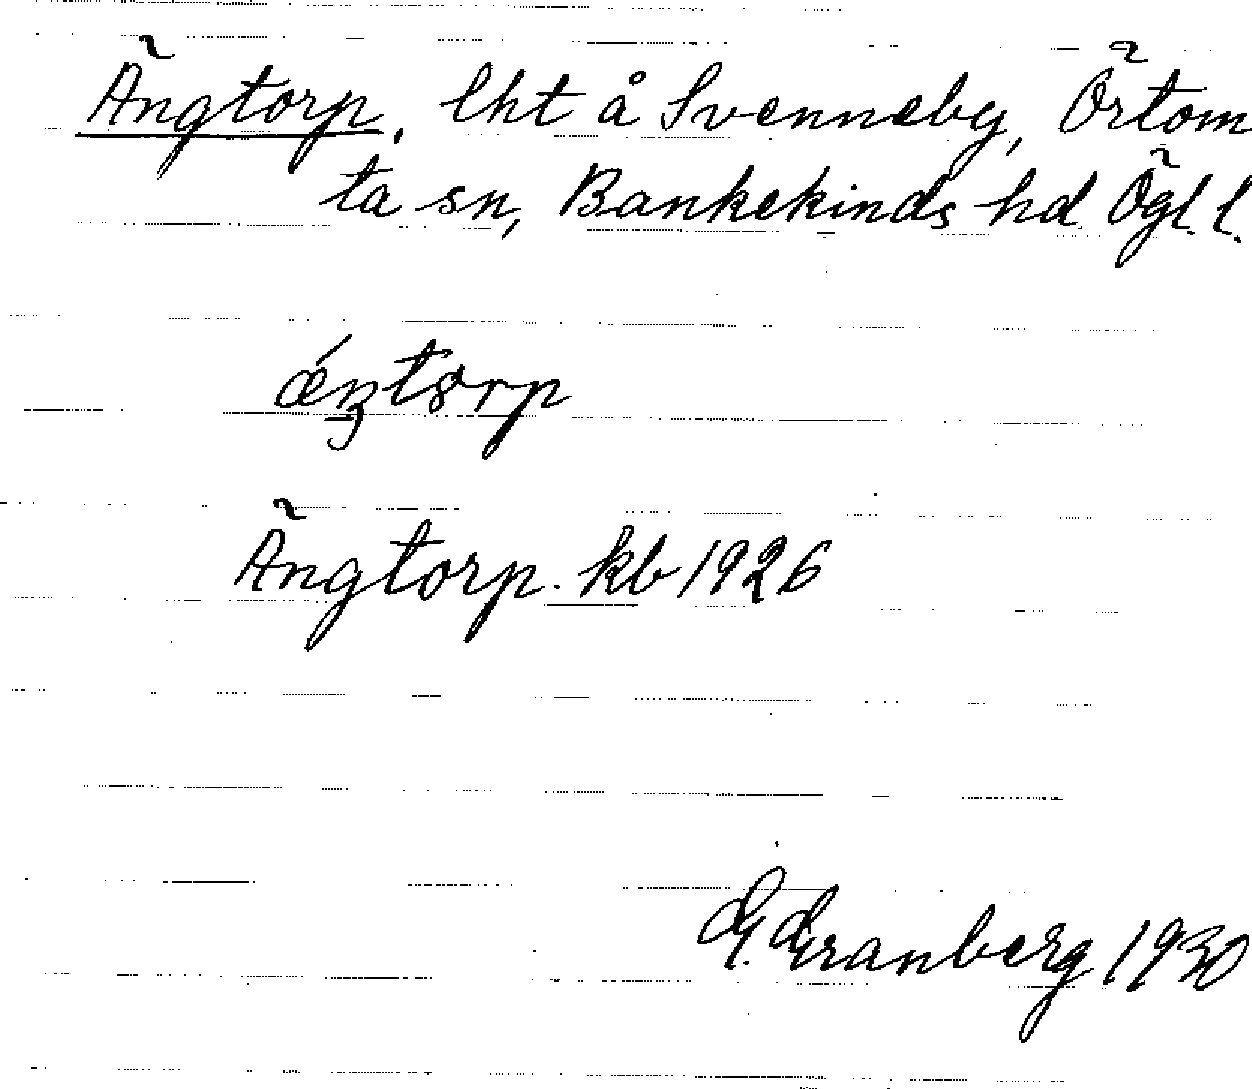 Ängtorp, lht å Svenneby, Örtom
ta sn, Bankekinds hd Ögl. l.
ǽŋtørp
Ängtorp. kb 1926
G. Granberg 1930